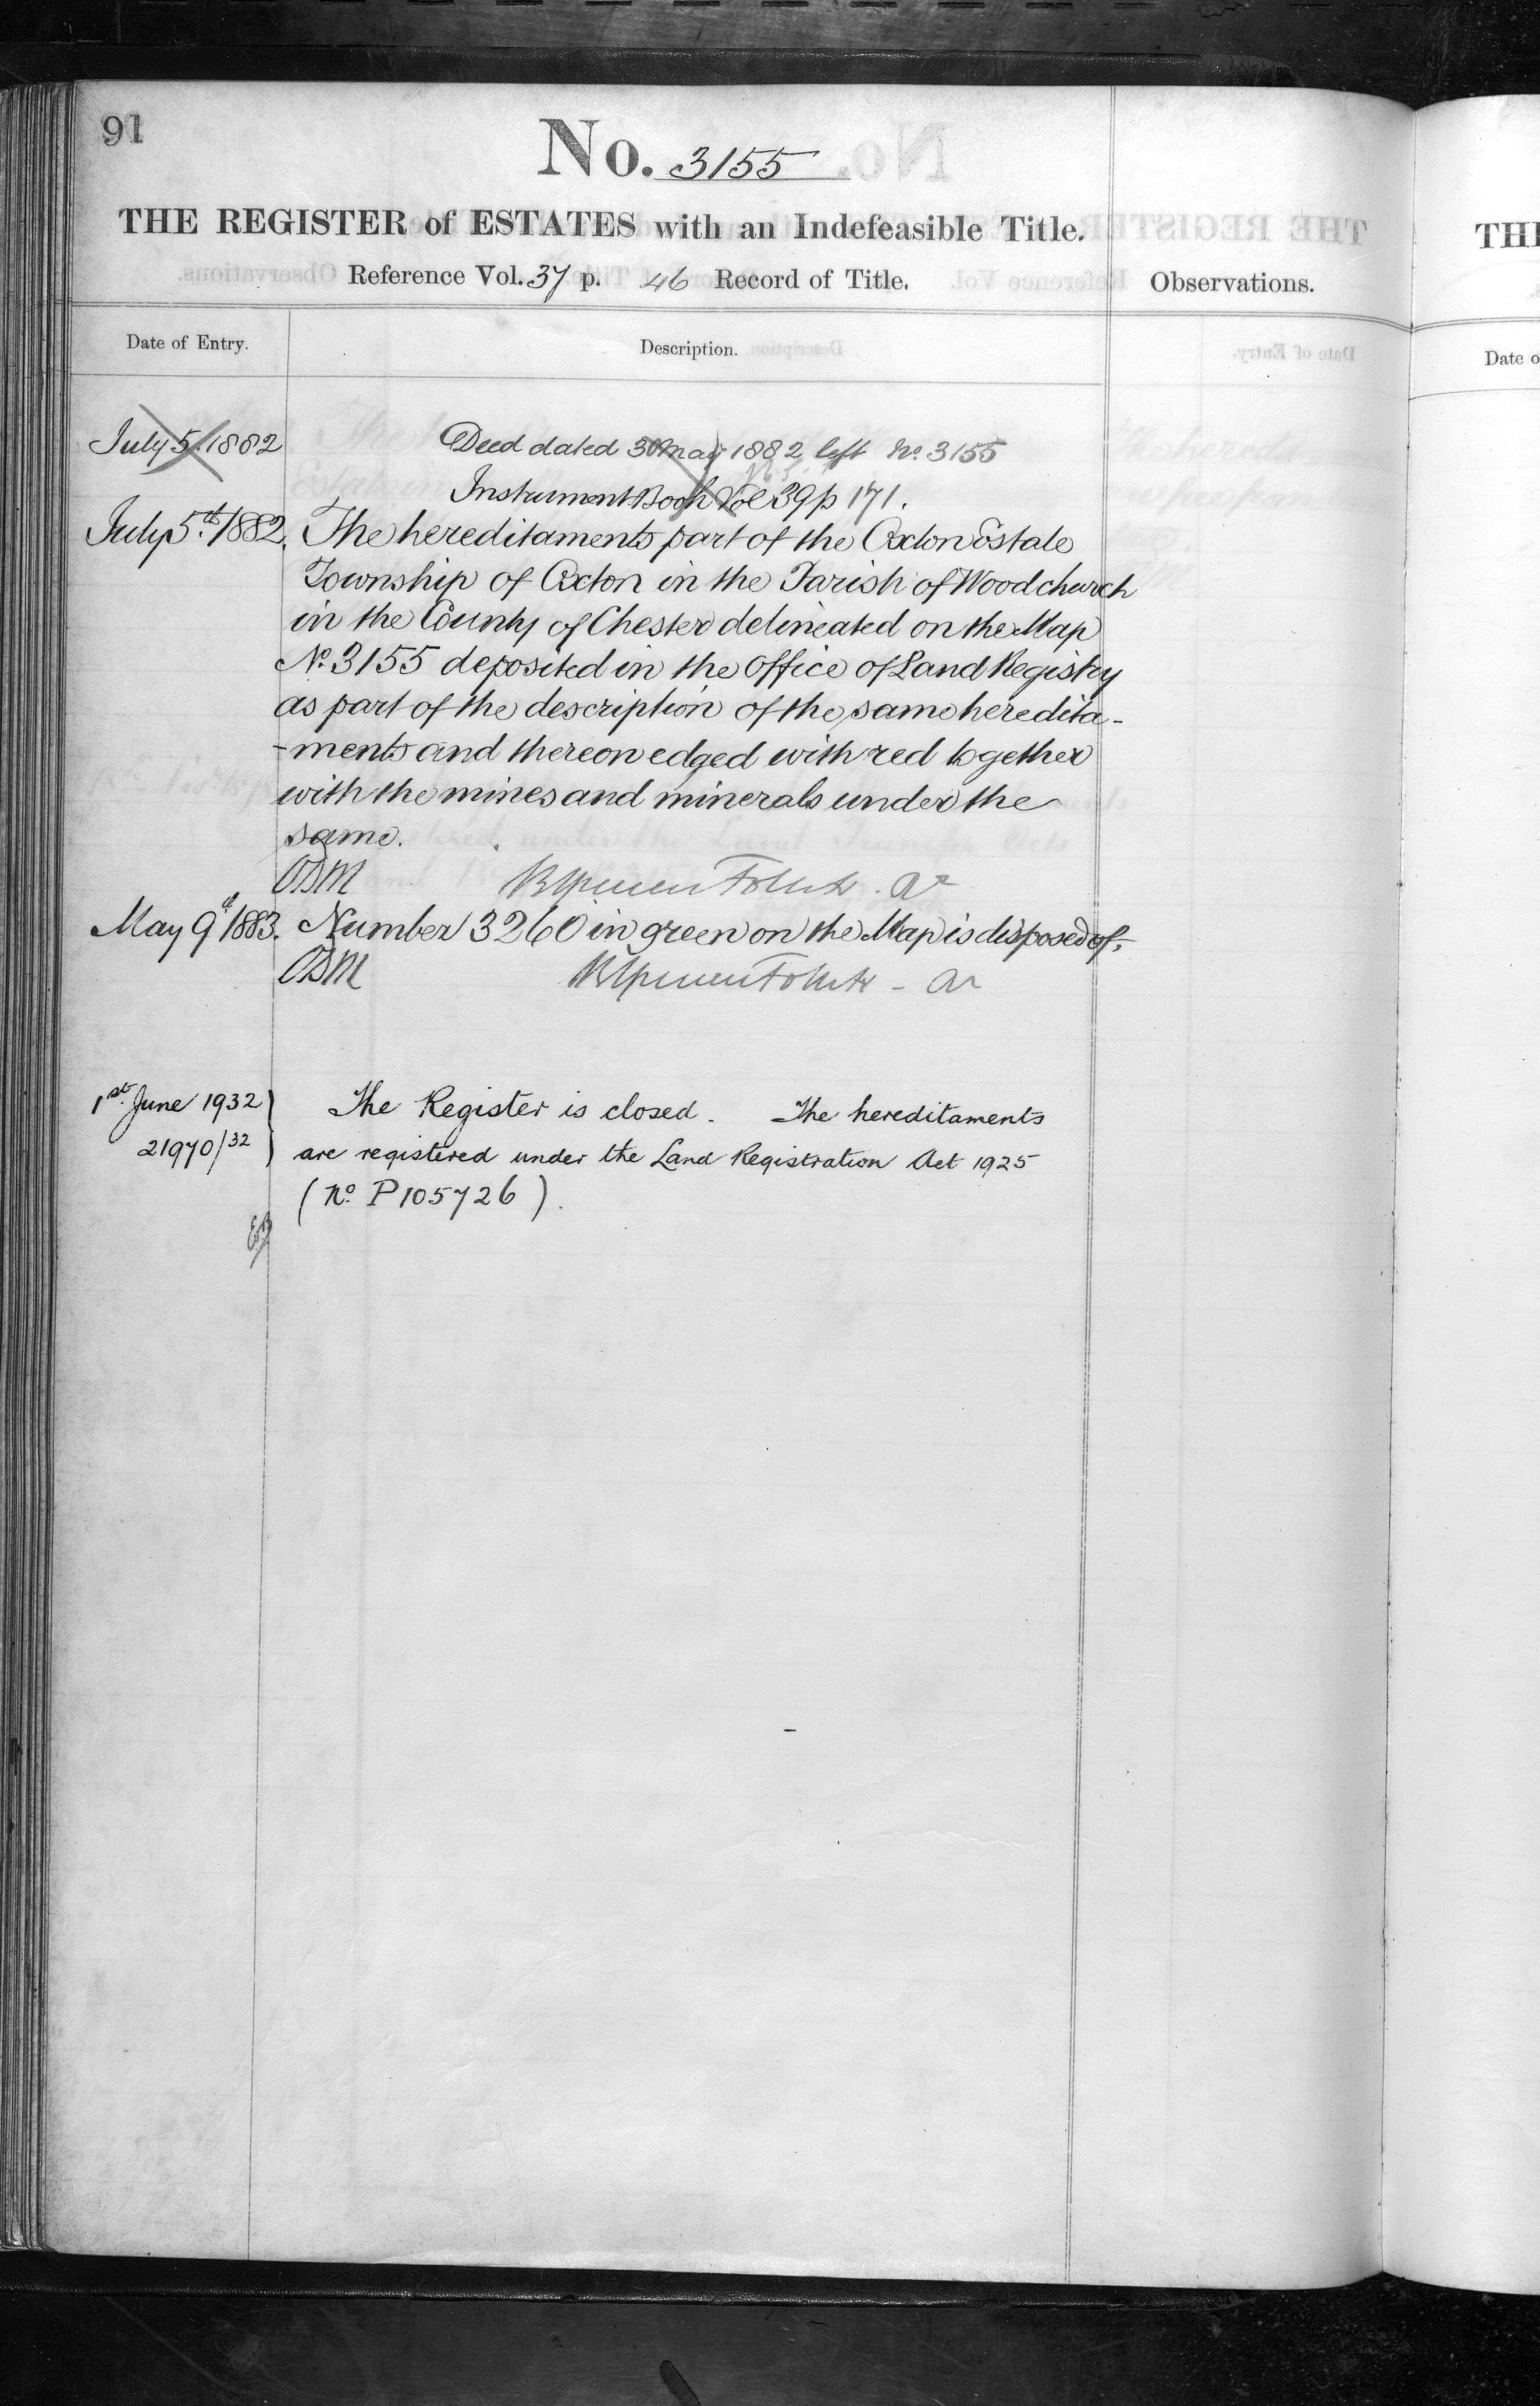 91
No. 3155
THE REGISTER of ESTATES with an Indefeasible Title.
Reference Vol. 37 p. 46 Record of Title.
Observations.
Date of Entry.
Description.
July 5. 1882
Deed dated 30 May 1882 left No. 3155
Instrument Book Vol 39 p 171.
July 5th. 1882. The hereditaments part of the Oxton Estate
Township of Oxton in the Parish of Woodchurch
in the County of Chester delineated on the Map
No. 3155 deposited in the Office of Land Registry
as part of the description of the same heredita-
-ments and thereon edged with red together
with the mines and minerals under the
same.
May 9th 1883. Number 3260 in green on the Map is disposed of.
1st. June 1932
21970/32
The Register is closed. The hereditaments
are registered under the Land Registration Act 1925
(No. P105726).
THE
Date o